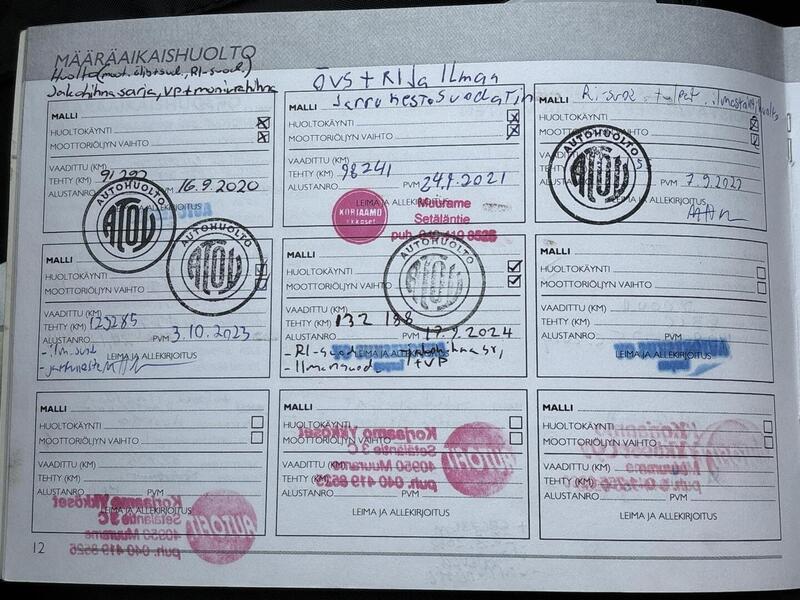 MÄÄRÄAIKAISHUOLTO
Huolto(moot.öljy+suod., RI-suod.)
Jakohihnasarja, VP+moniurahihna
MALLI
HUOLTOKÄYNTI
MOOTTORIÖLJYN VAIHTO
VAADITTU (KM)
TEHTY (KM) 91292
ALUSTANRO PVM 16.9.2020
LEIMA JA ALLEKIRJOITUS
AUTOHUOLTO
ÖVS + RI ja Ilman
Jarrunestosuodatin
MALLI
HUOLTOKÄYNTI
MOOTTORIÖLJYN VAIHTO
VAADITTU (KM)
TEHTY (KM) 98241
ALUSTANRO PVM 24.9.2021
LEIMA JA ALLEKIRJOITUS
KORJAAMO
Ykköset
Muurame
Setäläntie
puh. 040 419 8526
RI-suod.
MALLI
HUOLTOKÄYNTI
MOOTTORIÖLJYN VAIHTO
VAADITTU (KM)
TEHTY (KM)
ALUSTANRO PVM 7.9.2022
LEIMA JA ALLEKIRJOITUS
AUTOHUOLTO
MALLI
HUOLTOKÄYNTI
MOOTTORIÖLJYN VAIHTO
VAADITTU (KM)
TEHTY (KM) 123285
ALUSTANRO PVM 3.10.2023
LEIMA JA ALLEKIRJOITUS
- ilm.suod
AUTOHUOLTO
MALLI
HUOLTOKÄYNTI
MOOTTORIÖLJYN VAIHTO
VAADITTU (KM)
TEHTY (KM) 132 188
ALUSTANRO PVM 17.9.2024
LEIMA JA ALLEKIRJOITUS
- RI-suod
- Ilmansuod.
+VP
AUTOHUOLTO
MALLI
HUOLTOKÄYNTI
MOOTTORIÖLJYN VAIHTO
VAADITTU (KM)
TEHTY (KM)
ALUSTANRO PVM
LEIMA JA ALLEKIRJOITUS
MALLI
HUOLTOKÄYNTI
MOOTTORIÖLJYN VAIHTO
VAADITTU (KM)
TEHTY (KM)
ALUSTANRO PVM
LEIMA JA ALLEKIRJOITUS
Korjaamo Ykköset
Setäläntie 3 C
40950 Muurame
puh. 040 419 8526
AUTOFIT
MALLI
HUOLTOKÄYNTI
MOOTTORIÖLJYN VAIHTO
VAADITTU (KM)
TEHTY (KM)
ALUSTANRO PVM
LEIMA JA ALLEKIRJOITUS
Korjaamo Ykköset
Setäläntie 3 C
40950 Muurame
puh. 040 419 8526
AUTOFIT
MALLI
HUOLTOKÄYNTI
MOOTTORIÖLJYN VAIHTO
VAADITTU (KM)
TEHTY (KM)
ALUSTANRO PVM
LEIMA JA ALLEKIRJOITUS
12